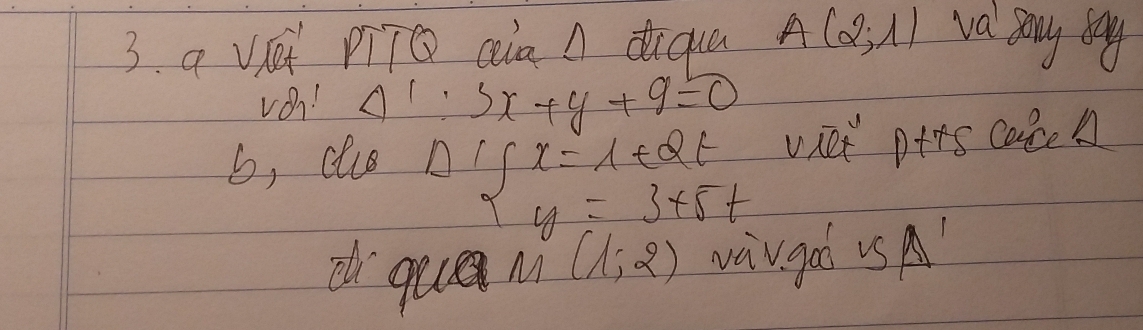 3. a Viết PTTQ của Δ đi qua A(2;1) và song song
với Δ' : 3x + y + 9 = 0
b, cho Δ' { x = 1 + 2t viết ptts của Δ
y = 3 + 5t
đi qua M (1;2) và v.goó vs Δ'